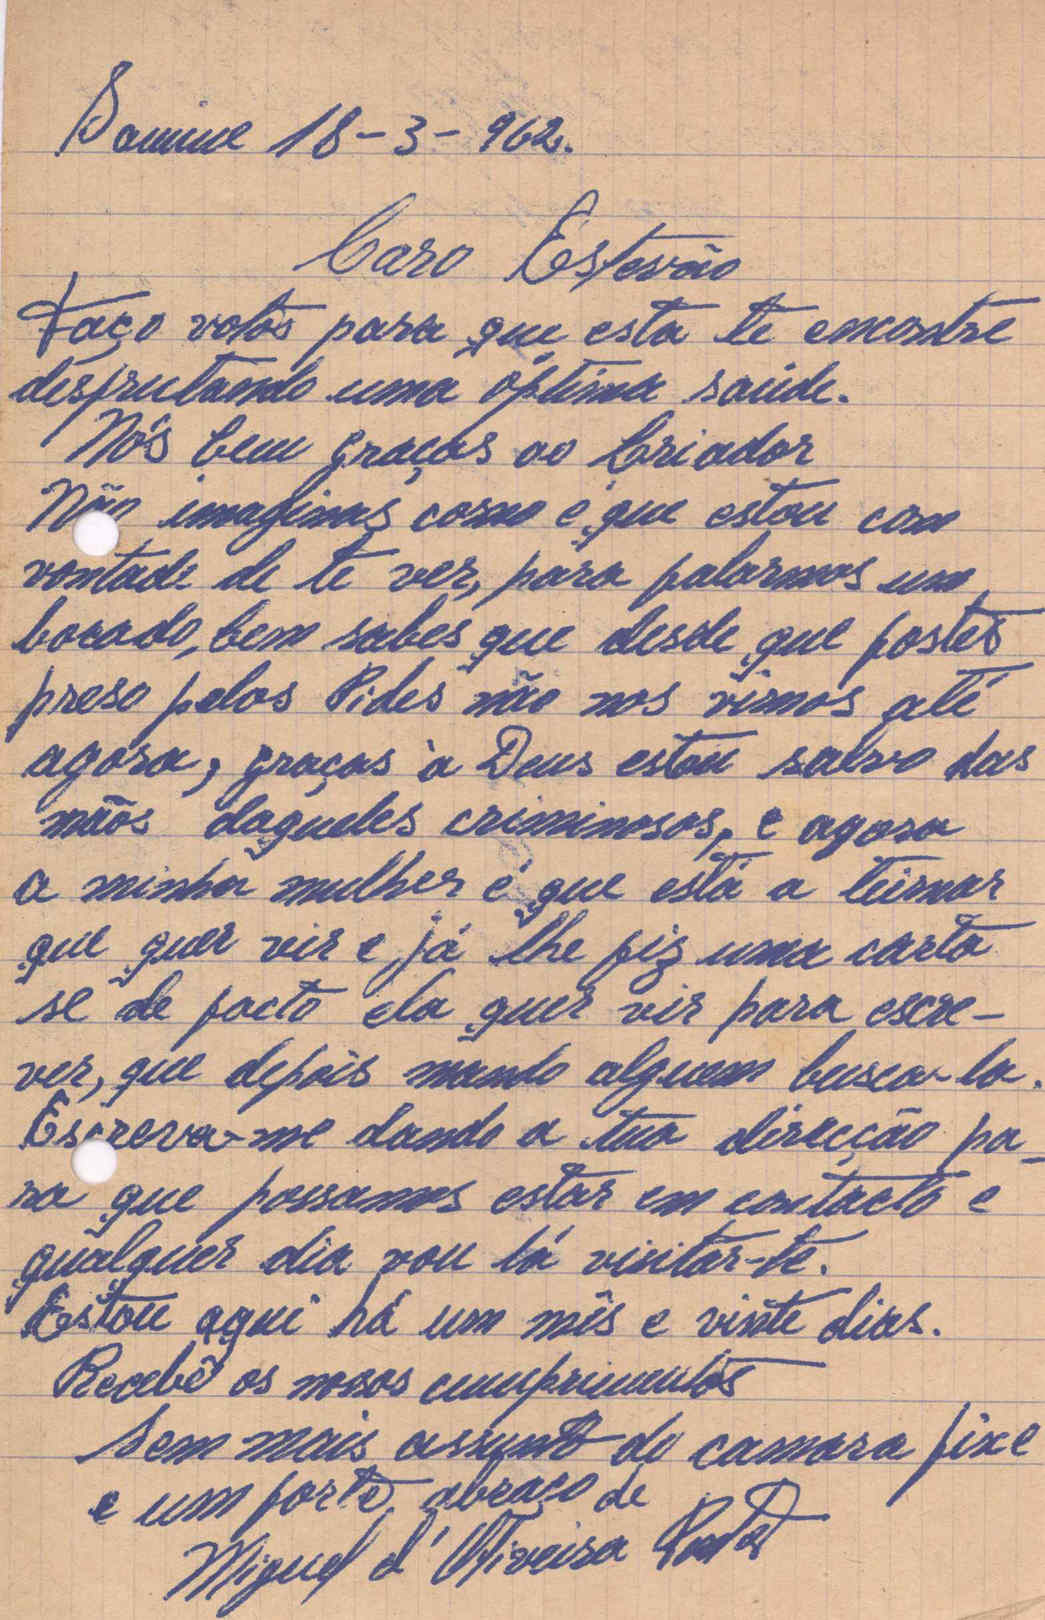 Samine 18-3-962.
Caro Estevão
Faço votos para que esta te encontre
desfrutando uma óptima saúde.
Nós bem graças ao Criador
Não imaginas como é que estou com
vontade de te ver, para falarmos um
bocado, bem sabes que desde que fostes
preso pelos Pides não nos vimos até
agora, graças à Deus estou salvo das
mãos daqueles criminosos, e agora
a minha mulher é que está a teimar
que quer vir e já lhe fiz uma carta
se de facto ela quer vir para escre-
ver, que depois mando alguem busca-la.
Escreva-me dando a tua direcção pa-
ra que possamos estar em contacto e
qualquer dia vou lá visitar-te.
Estou aqui há um mês e vinte dias.
Recebê os nossos cumprimentos
Sem mais assunto do camara fixe
e um forte abraço de
Miguel d'Oliveira